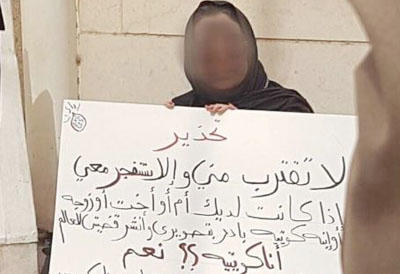 تحذير
لا تقترب مني وإلا ستنفجر معي
إذا كانت لديك أم أو أخت أو زوجة
أو ابنة كويتية بادر بتصويري وأنشر قضيتي للعالم
أنا كويتية؟؟ نعم